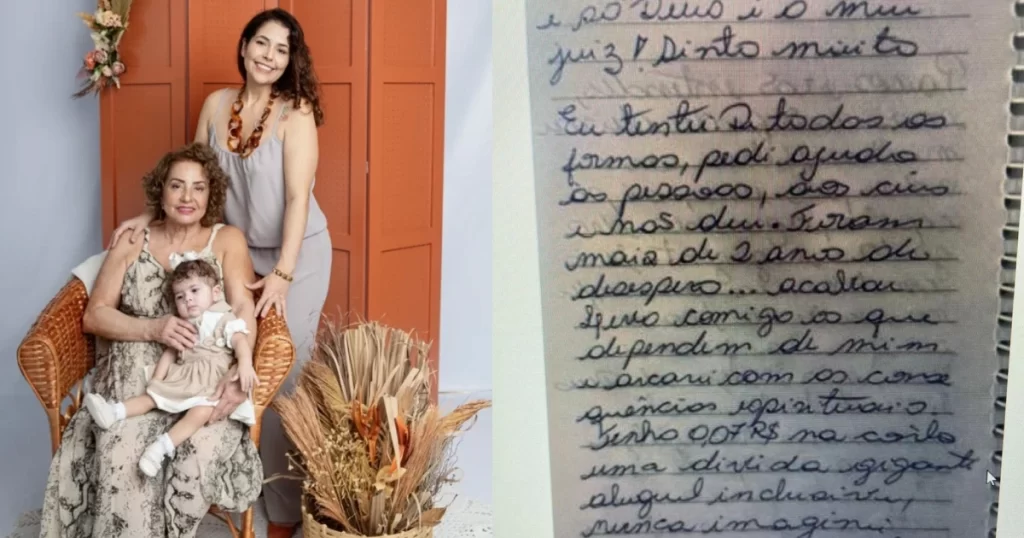 e só Deus é o meu
juiz! Sinto muito
Eu tentei de todas as
formas, pedi ajuda
as pessoas, aos céus
e não deu. Foram
mais de 2 anos de
desespero... acabou
Levo comigo os que
dependem de mim
e arcarei com as conse
quências espirituais.
Tenho 0,07 R$ na conta
uma divida gigante
aluguel inclusive,
nunca imaginei